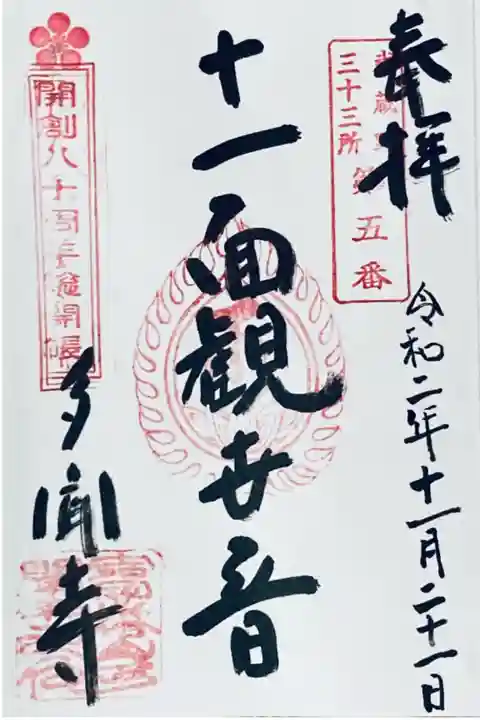 奉拝
三十三所
第五番
令和二年十一月二十一日
十一面観世音
開創八十周年総開帳
多聞寺